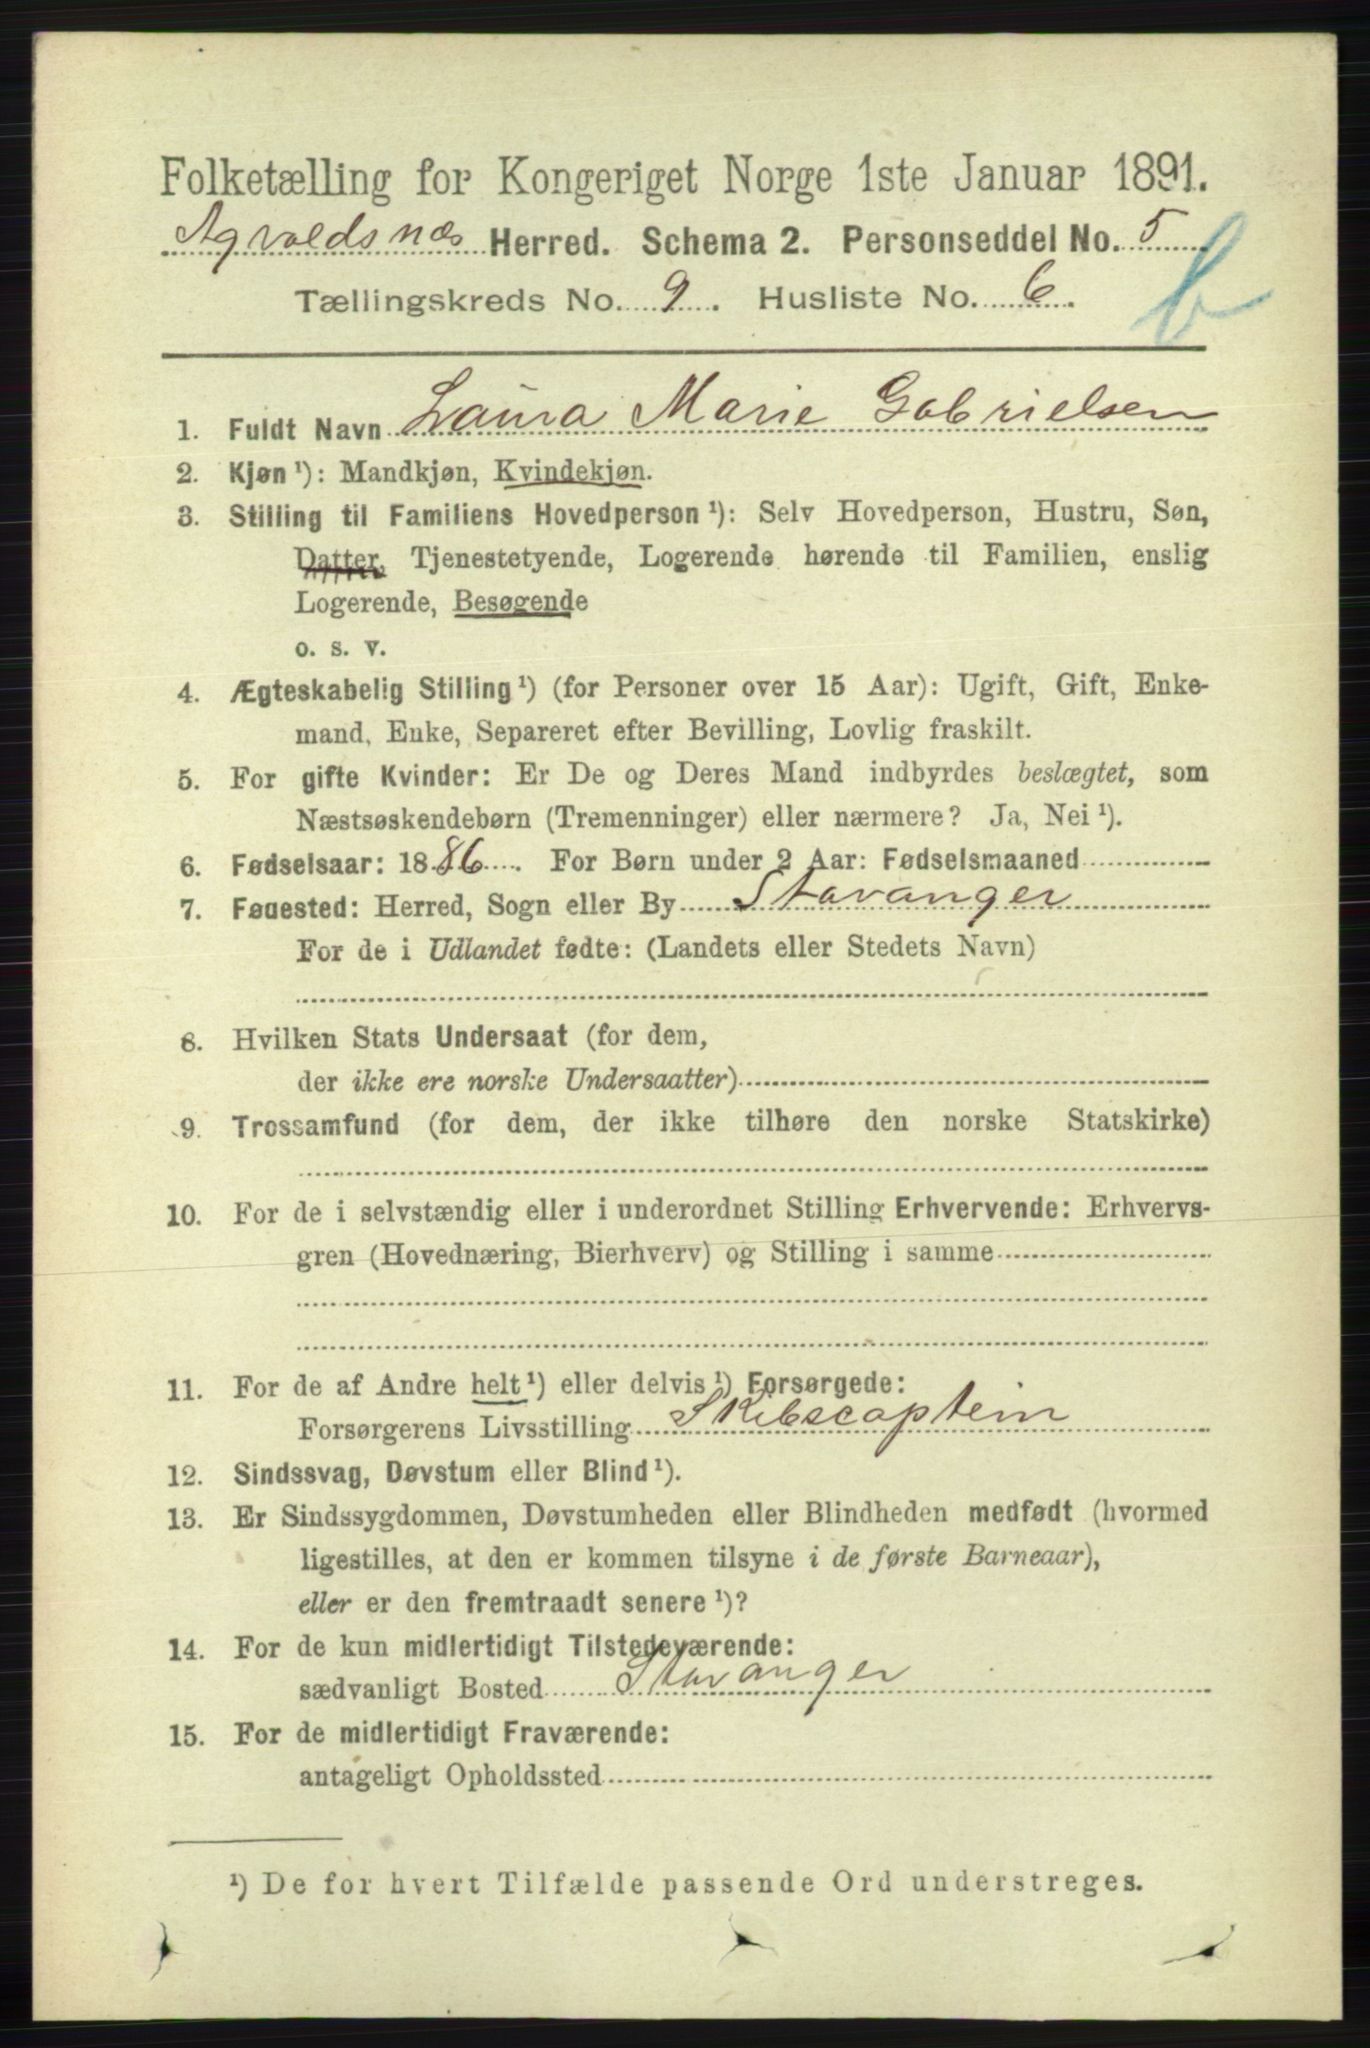 Folketælling for Kongeriget Norge 1ste Januar 1891.
Agvoldsnæs Herred. Schema 2. Personseddel No. 5
b
Tællingskreds No. 9. Husliste No. 6.
1. Fuldt Navn Laura Marie Gabrielsen
2. Kjøn ¹): Mandkjøn, Kvindekjøn.
3. Stilling til Familiens Hovedperson ¹): Selv Hovedperson, Hustru, Søn,
Datter, Tjenestetyende, Logerende hørende til Familien, enslig
Logerende, Besøgende
o. s. v.
4. Ægteskabelig Stilling ¹) (for Personer over 15 Aar): Ugift, Gift, Enke-
mand, Enke, Separeret efter Bevilling, Lovlig fraskilt.
5. For gifte Kvinder: Er De og Deres Mand indbyrdes beslægtet, som
Næstsøskendebørn (Tremenninger) eller nærmere? Ja, Nei ¹).
6. Fødselsaar: 1886. For Børn under 2 Aar: Fødselsmaaned
7. Føuested: Herred, Sogn eller By Stavanger
For de i Udlandet fødte: (Landets eller Stedets Navn)
8. Hvilken Stats Undersaat (for dem,
der ikke ere norske Undersaatter)
9. Trossamfund (for dem, der ikke tilhøre den norske Statskirke)
10. For de i selvstændig eller i underordnet Stilling Erhvervende: Erhvervs-
gren (Hovednæring, Bierhverv) og Stilling i samme
11. For de af Andre helt ¹) eller delvis ¹) Forsørgede:
Forsørgerens Livsstilling Skibscaptein
12. Sindssvag, Døvstum eller Blind ¹).
13. Er Sindssygdommen, Døvstumheden eller Blindheden medfødt (hvormed
ligestilles, at den er kommen tilsyne i de første Barneaar),
eller er den fremtraadt senere ¹)?
14. For de kun midlertidigt Tilstedeværende:
sædvanligt Bosted Stavanger
15. For de midlertidigt Fraværende:
antageligt Opholdssted
¹) De for hvert Tilfælde passende Ord understreges.